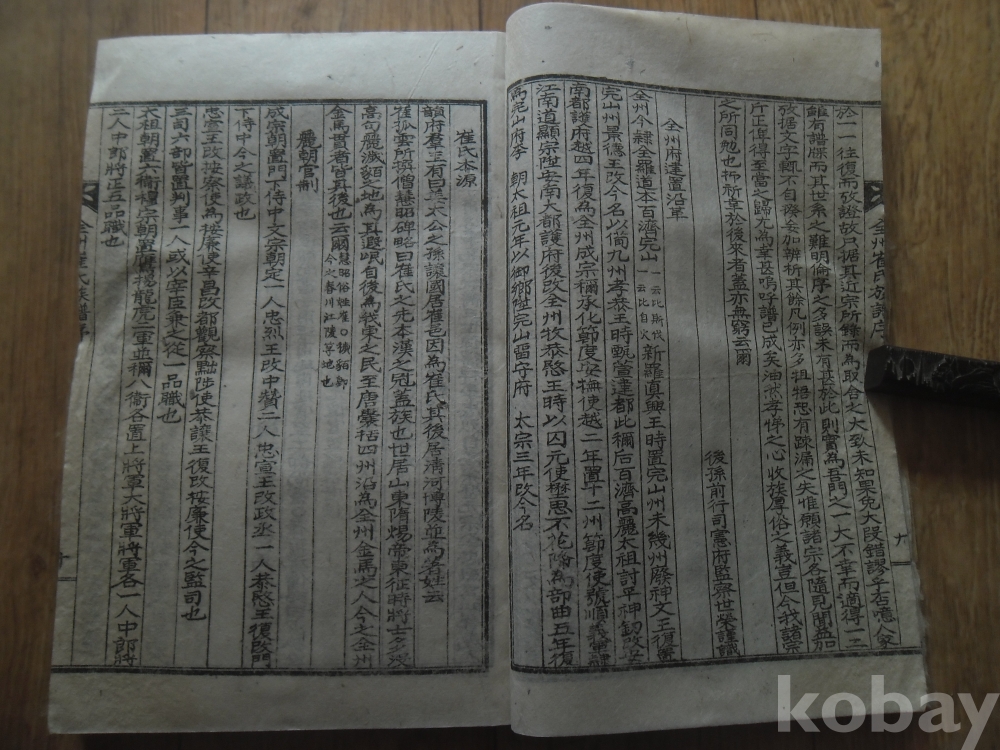 全州崔氏族譜序
於一一往復而攷證故只据其近宗所錄而爲取舍之大致未知果免大段錯謬乎否噫人家
雖有譜牒而其世系之難明倫序之多誤未有甚於此則實爲吾門之一大不幸而適得一二
攷据文字輒不自揆妄加辨析其餘凡例亦多狙牾恐有疎漏之失惟願諸宗各隨見聞益加
斤正俾得至當之歸尤爲幸甚嗚呼譜已成矣油然孝悌之心收族厚俗之義豈但今我諸宗
之所同勉也抑祈幸於後來者蓋亦無窮云爾
後孫前行司憲府監察世榮謹識
全州府建置沿革
全州今隷全羅道本百濟完山一云比斯伐一云比自火新羅眞興王時置完山州未幾州廢神文王復置
完山州景德王改今名以備九州孝恭王時甄萱建都此稱后百濟高麗太祖討平神劒改安
南都護府越四年復爲全州成宗稱承化節度安撫使越二年置十二州節度使號順義軍隷
江南道顯宗陞安南大都護府後改全州牧恭愍王時以囚元使埜思不花降爲部曲五年復
爲完山府李朝太祖元年以御鄕陞完山留守府 太宗三年改今名
崔氏本源
韻府羣玉有曰姜太公之孫讓國居崔邑因爲崔氏其後居淸河博陵並爲著姓云
崔孤雲所撰僧慧昭碑略曰崔氏之先本漢之冠蓋族也世居山東隋煬帝東征時將士多沒
高句麗濊貊之地爲其遐氓自後爲我東之民至唐囊括四州沿爲全州金馬之人今之全州
金馬貫者皆其後也云爾慧昭俗姓崔○濊貊卽今之春川江陵等地也
麗朝官制
成宗朝置門下侍中文宗朝定一人忠烈王改中贊二人忠宣王改政丞一人恭愍王復改門
下侍中今之議政也
忠宣王改按察使爲按廉使辛禑改都觀察黜陟使恭讓王復改按廉使今之監司也
三司六部皆置判事一人或以宰臣兼之從一品職也
太祖朝置六衛穆宗朝置鷹揚龍虎二軍並稱八衛各置上將軍大將軍將軍各一人中郞將
二人中郞將正五品職也